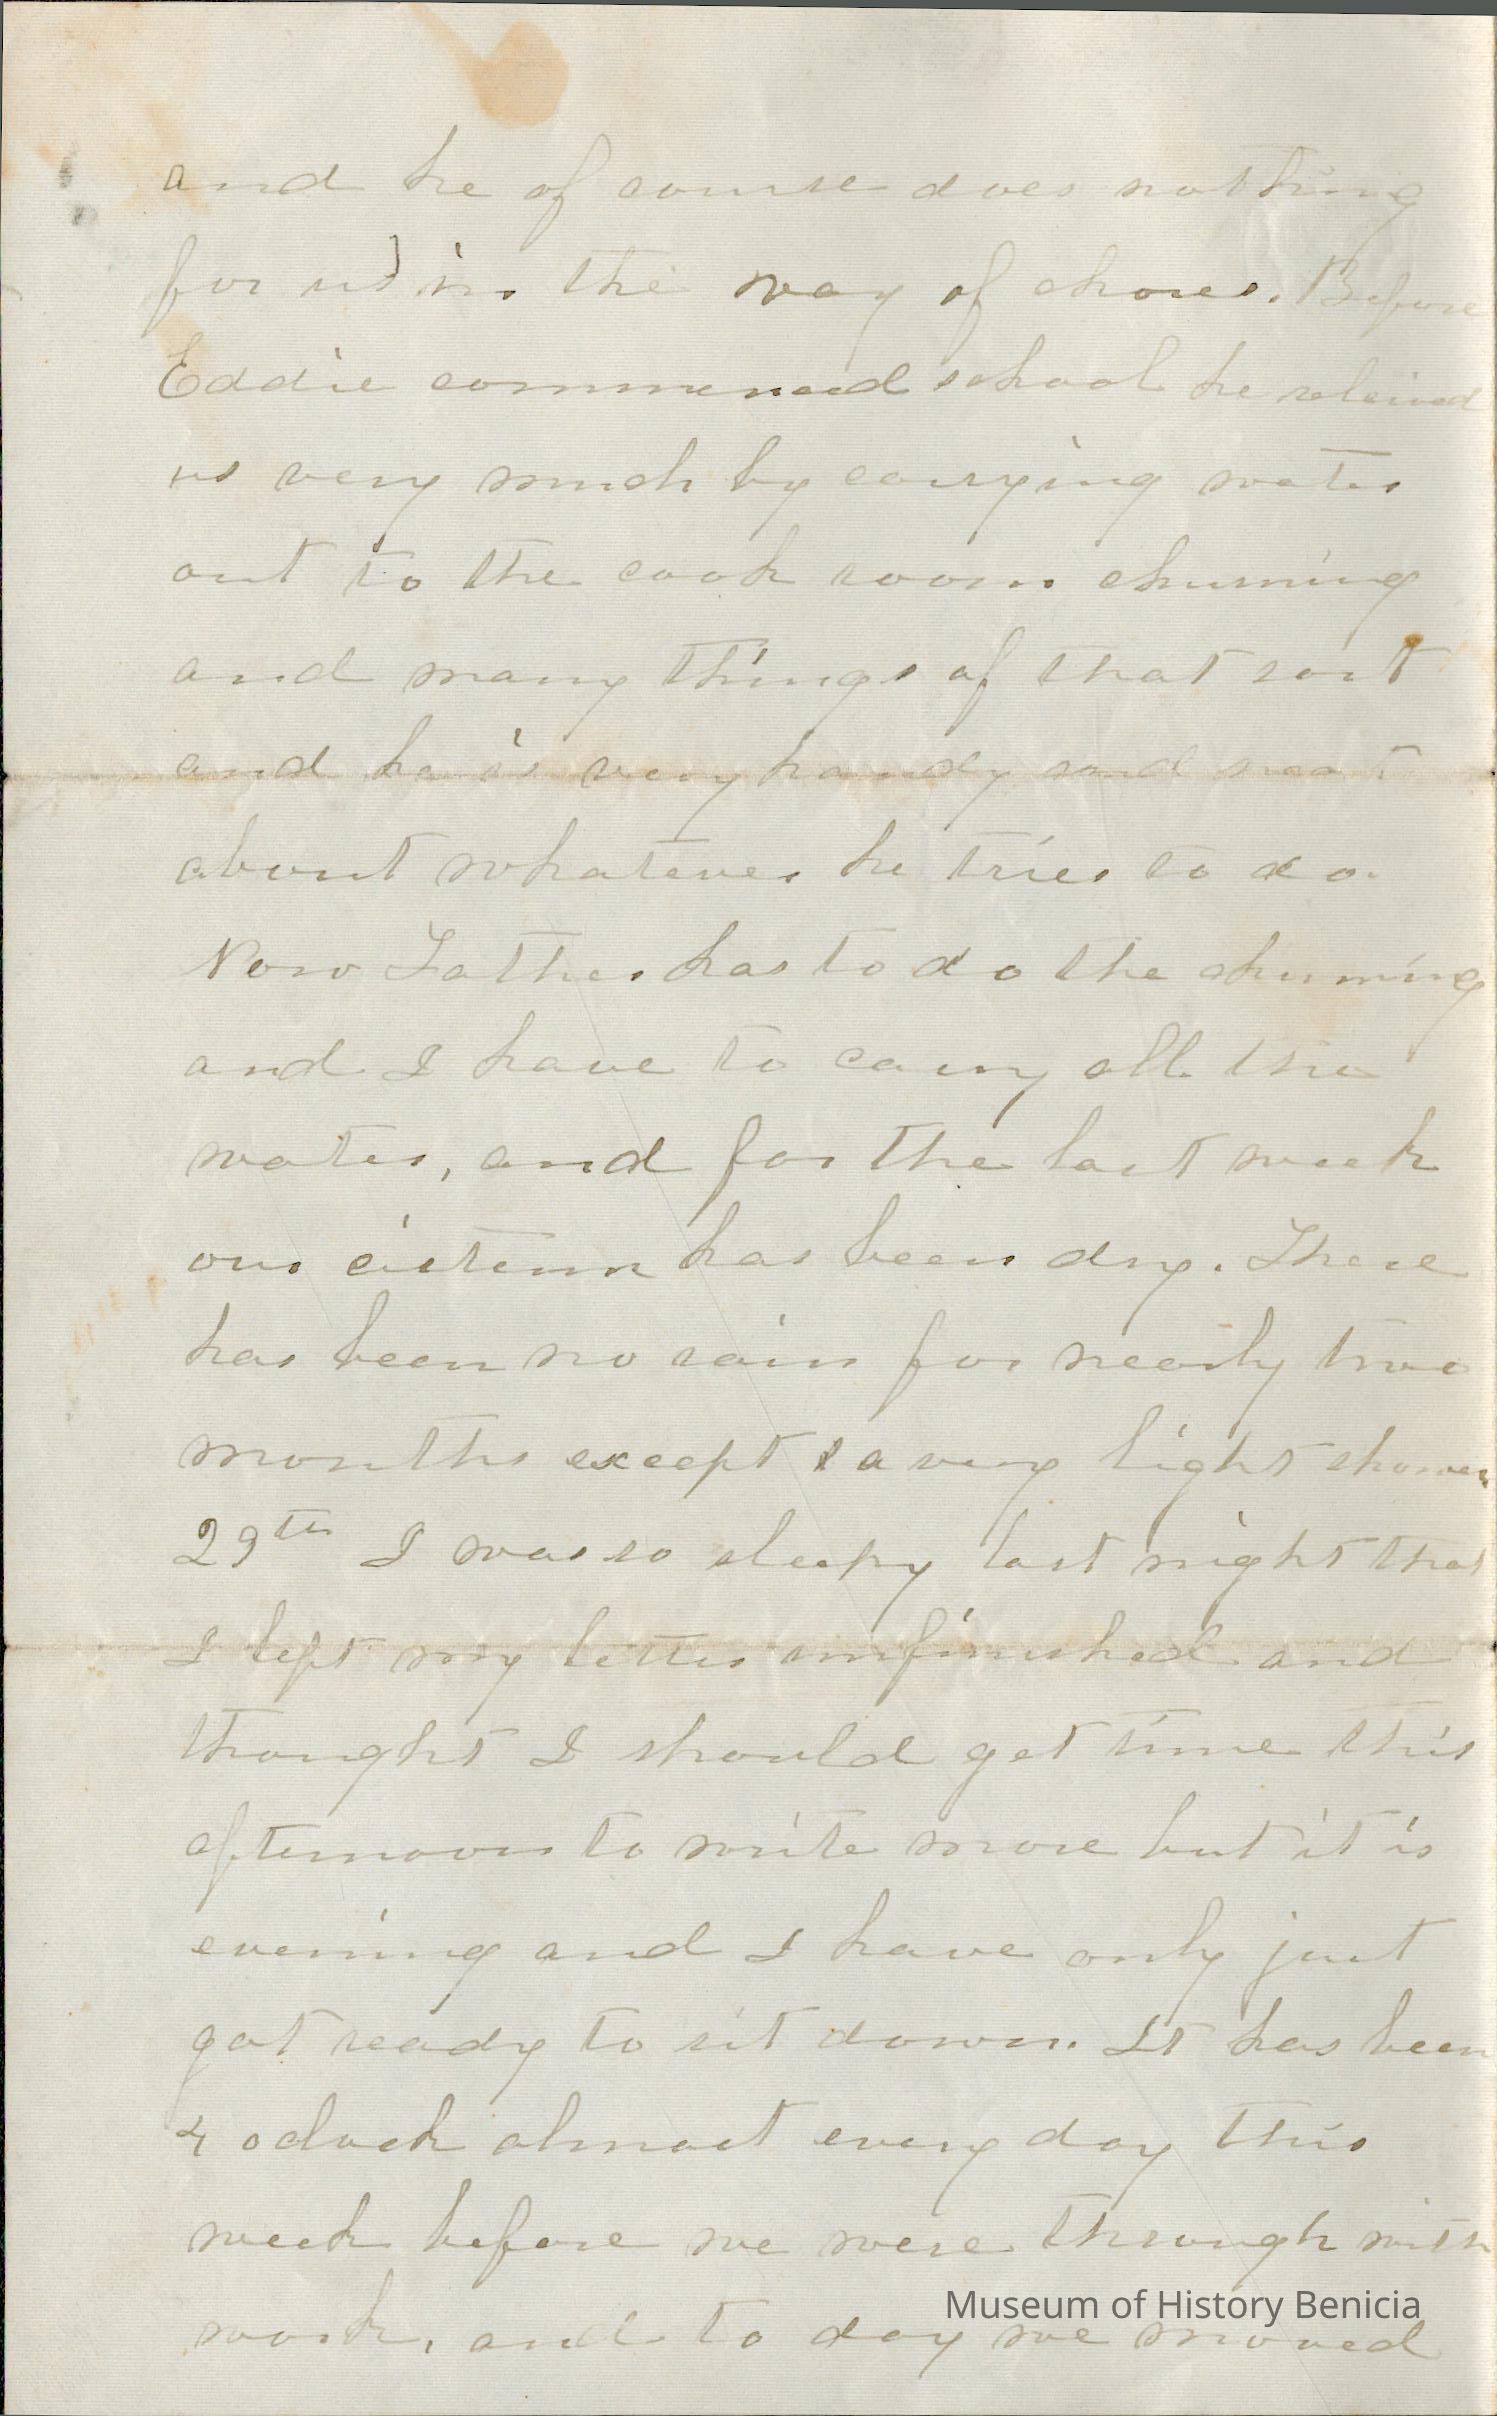 and he of course does nothing
for us in the way of chores. Before
Eddie commenced school he releived
us very much by carrying water
out to the cook room churning
and many things of that sort
and he is very handy and neat
about whatever he tries to do.
Now Father has to do the churning
and I have to carry all the
water, and for the last week
our cistern has been dry. There
has been no rain for nearly two
months except a very light shower
29th I was so sleepy last night that
I left my letter unfinished and
thought I should get time this
afternoon to write more but it is
evening and I have only just
got ready to sit down. It has been
4 oclock almost every day this
week before we were through with
work, and to day we moved
Museum of History Benicia